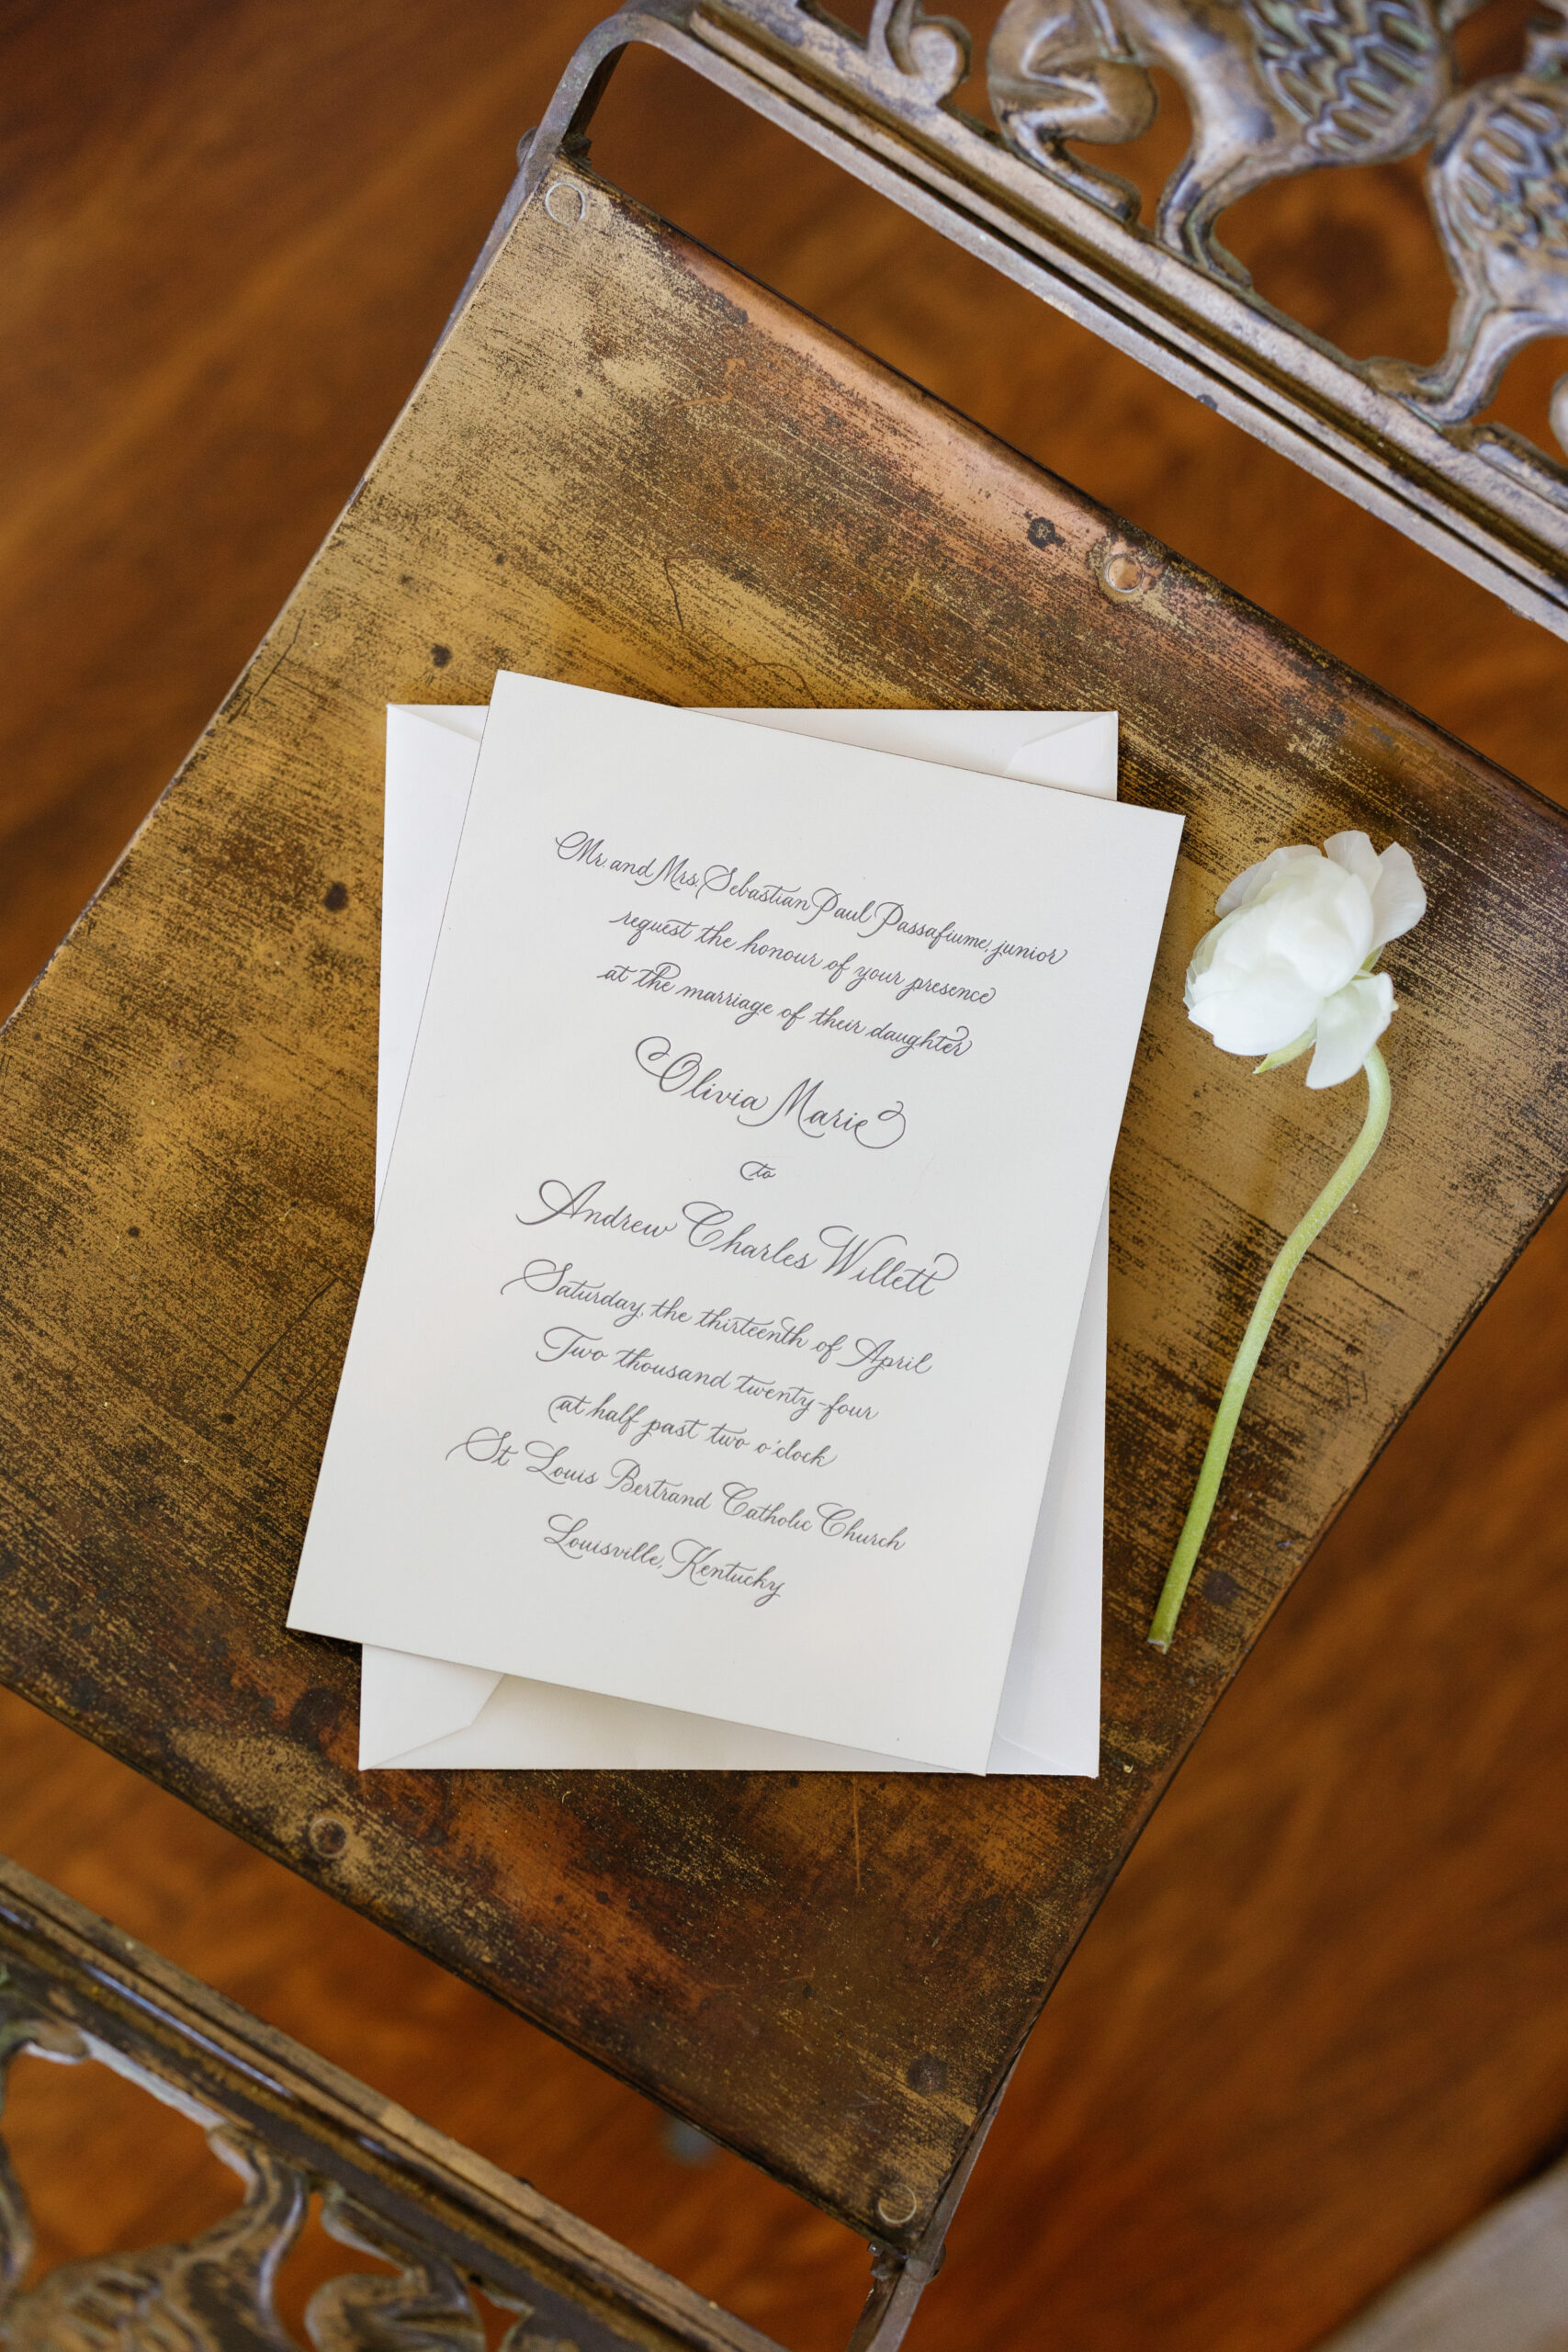 Mr. and Mrs. Sebastian Paul Passafiume, junior
request the honour of your presence
at the marriage of their daughter
Olivia Marie
to
Andrew Charles Willett
Saturday, the thirteenth of April
Two thousand twenty-four
at half past two o'clock
St Louis Bertrand Catholic Church
Louisville, Kentucky